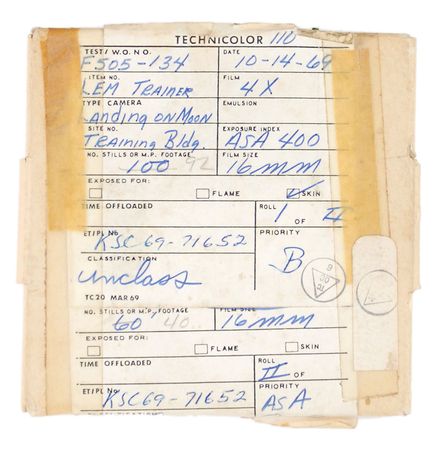 TECHNICOLOR 110
TEST/W.O. NO. DATE
F505-134 10-14-69
ITEM NO. FILM
LEM Trainer 4X
TYPE CAMERA EMULSION
Landing on Moon
SITE NO. EXPOSURE INDEX
Training Bldg. ASA 400
NO. STILLS OR M.P. FOOTAGE FILM SIZE
100 92 16mm
EXPOSED FOR:
FLAME SKIN
TIME OFFLOADED ROLL
1 OF II
ET/PL No. PRIORITY
KSC69-71652
B
CLASSIFICATION
unclass
TC20 MAR 69
NO. STILLS OR M.P. FOOTAGE FILM SIZE
60' 40 16mm
EXPOSED FOR:
FLAME SKIN
TIME OFFLOADED ROLL
II OF
ET/PL No. PRIORITY
KSC69-71652 ASA